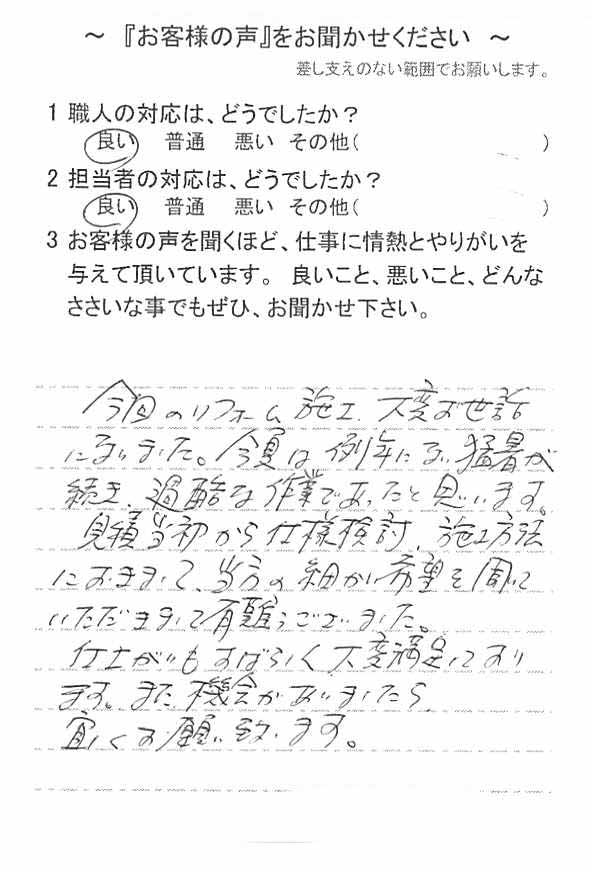 ～ 『お客様の声』をお聞かせください ～
差し支えのない範囲でお願いします。
1 職人の対応は、どうでしたか？
良い 普通 悪い その他( )
2 担当者の対応は、どうでしたか？
良い 普通 悪い その他( )
3 お客様の声を聞くほど、仕事に情熱とやりがいを
与えて頂いています。 良いこと、悪いこと、どんな
ささいな事でもぜひ、お聞かせ下さい。
今回のリフォーム施工、大変お世話
になりました。今夏は例年にない猛暑が
続き、過酷な作業であったと思います。
見積当初から仕様検討、施工方法
におきまして、当方の細かい希望を聞いて
いただきまして有難うございました。
仕上がりもすばらしく大変満足しており
ます。また機会がありましたら
宜しくお願い致します。